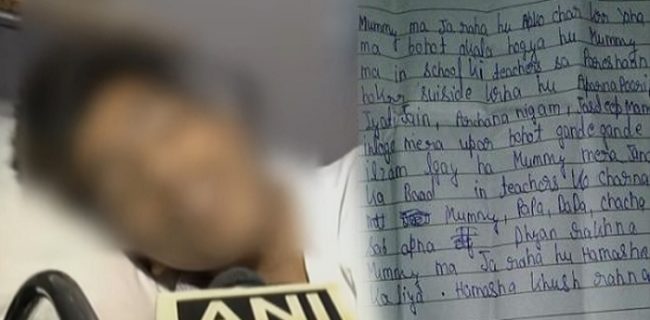 Mummy ma Ja raha hu Apko chor kar papa
ma bohot akala hogya hu Mummy
ma in school ki teachers sa Pareshaan
hokar suicide krha hu
Jyoti Jain, Archana nigam, Jasdeep Mam
inloge mera upar bohot gande gande
ilzam lgay ha Mummy mera Jana
Ka Baad in teachers ko
Mummy, PaPa, DaDa, chacha
sab apna Dhyan rakhna
Mummy ma Ja raha hu Hamasha
Ka liya. Hamasha khush rahna
ANI